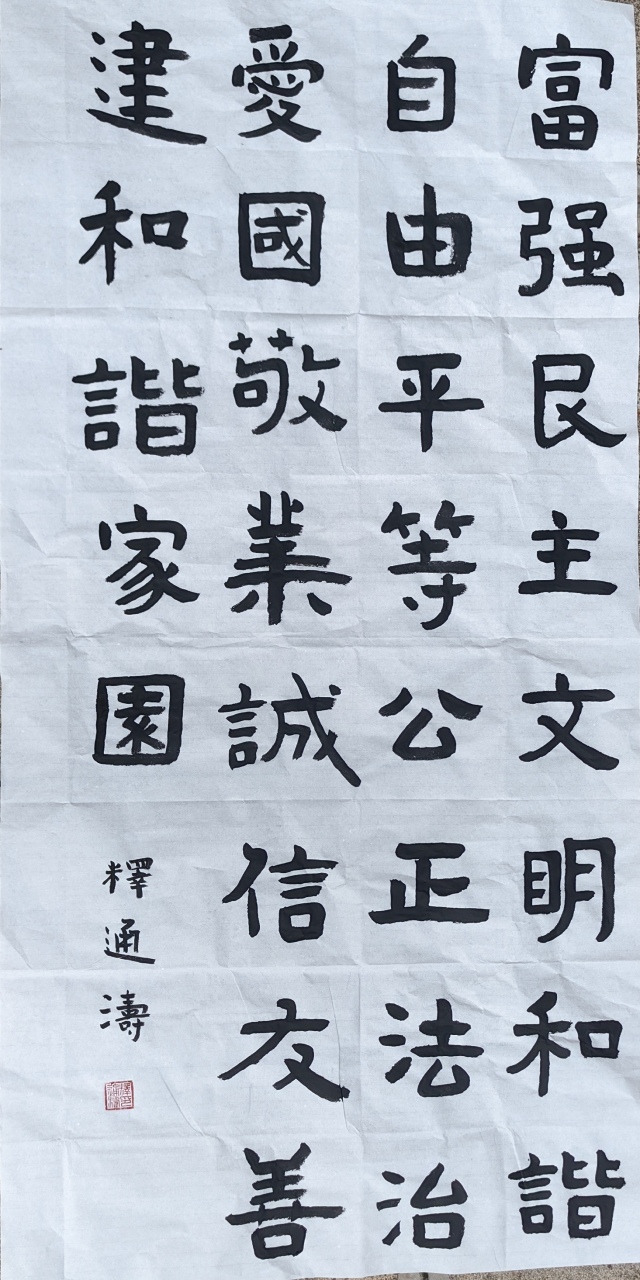 富强民主文明和諧
自由平等公正法治
愛國敬業誠信友善
建和諧家園
釋通濤